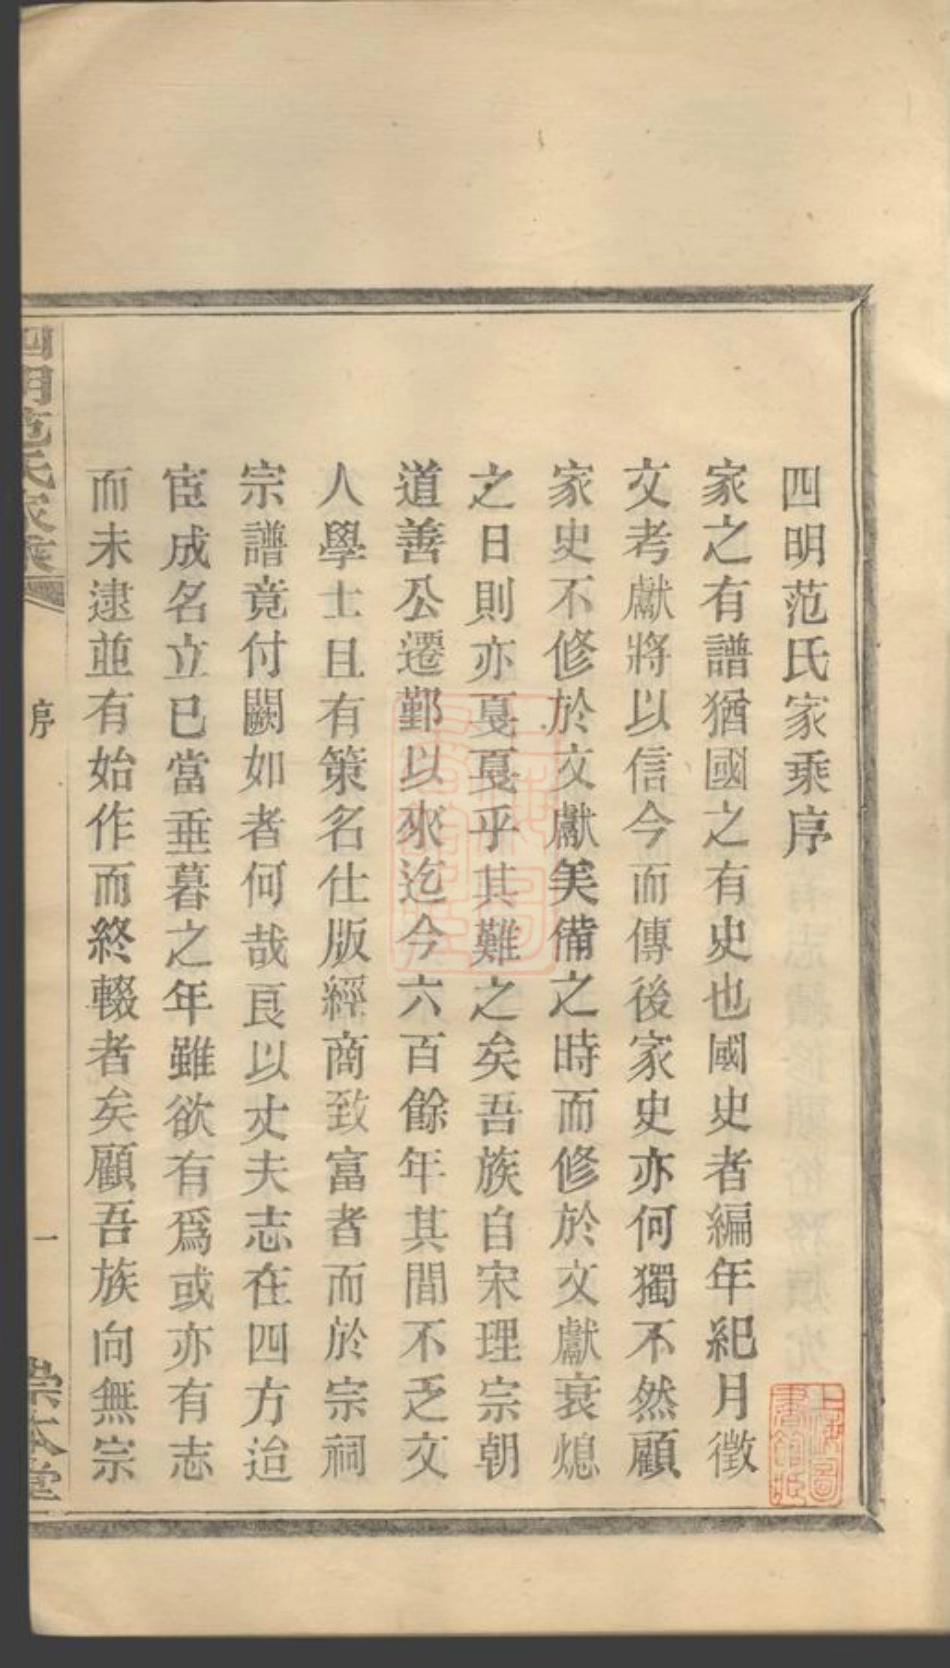 四明范氏家乘序
家之有譜猶國之有史也國史者編年紀月徵
文考獻將以信今而傳後家史亦何獨不然顧
家史不修於文獻美備之時而修於文獻衰熄
之日則亦戛戛乎其難之矣吾族自宋理宗朝
道善公遷鄞以來迄今六百餘年其間不乏文
人學士且有策名仕版經商致富者而於宗祠
宗譜竟付闕如者何哉良以丈夫志在四方迨
宦成名立已當垂暮之年雖欲有爲或亦有志
而未逮並有始作而終輟者矣顧吾族向無宗
四明范氏家乘
序
一
崇本堂